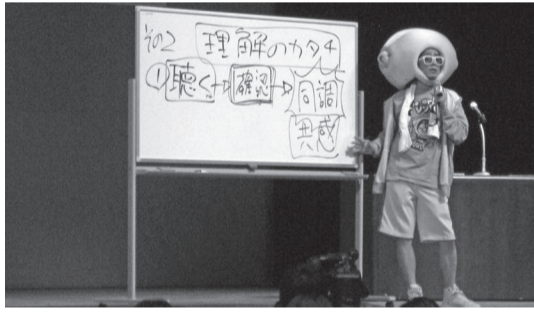 その2 理解のカタチ
①聴く→確認→同調
共感